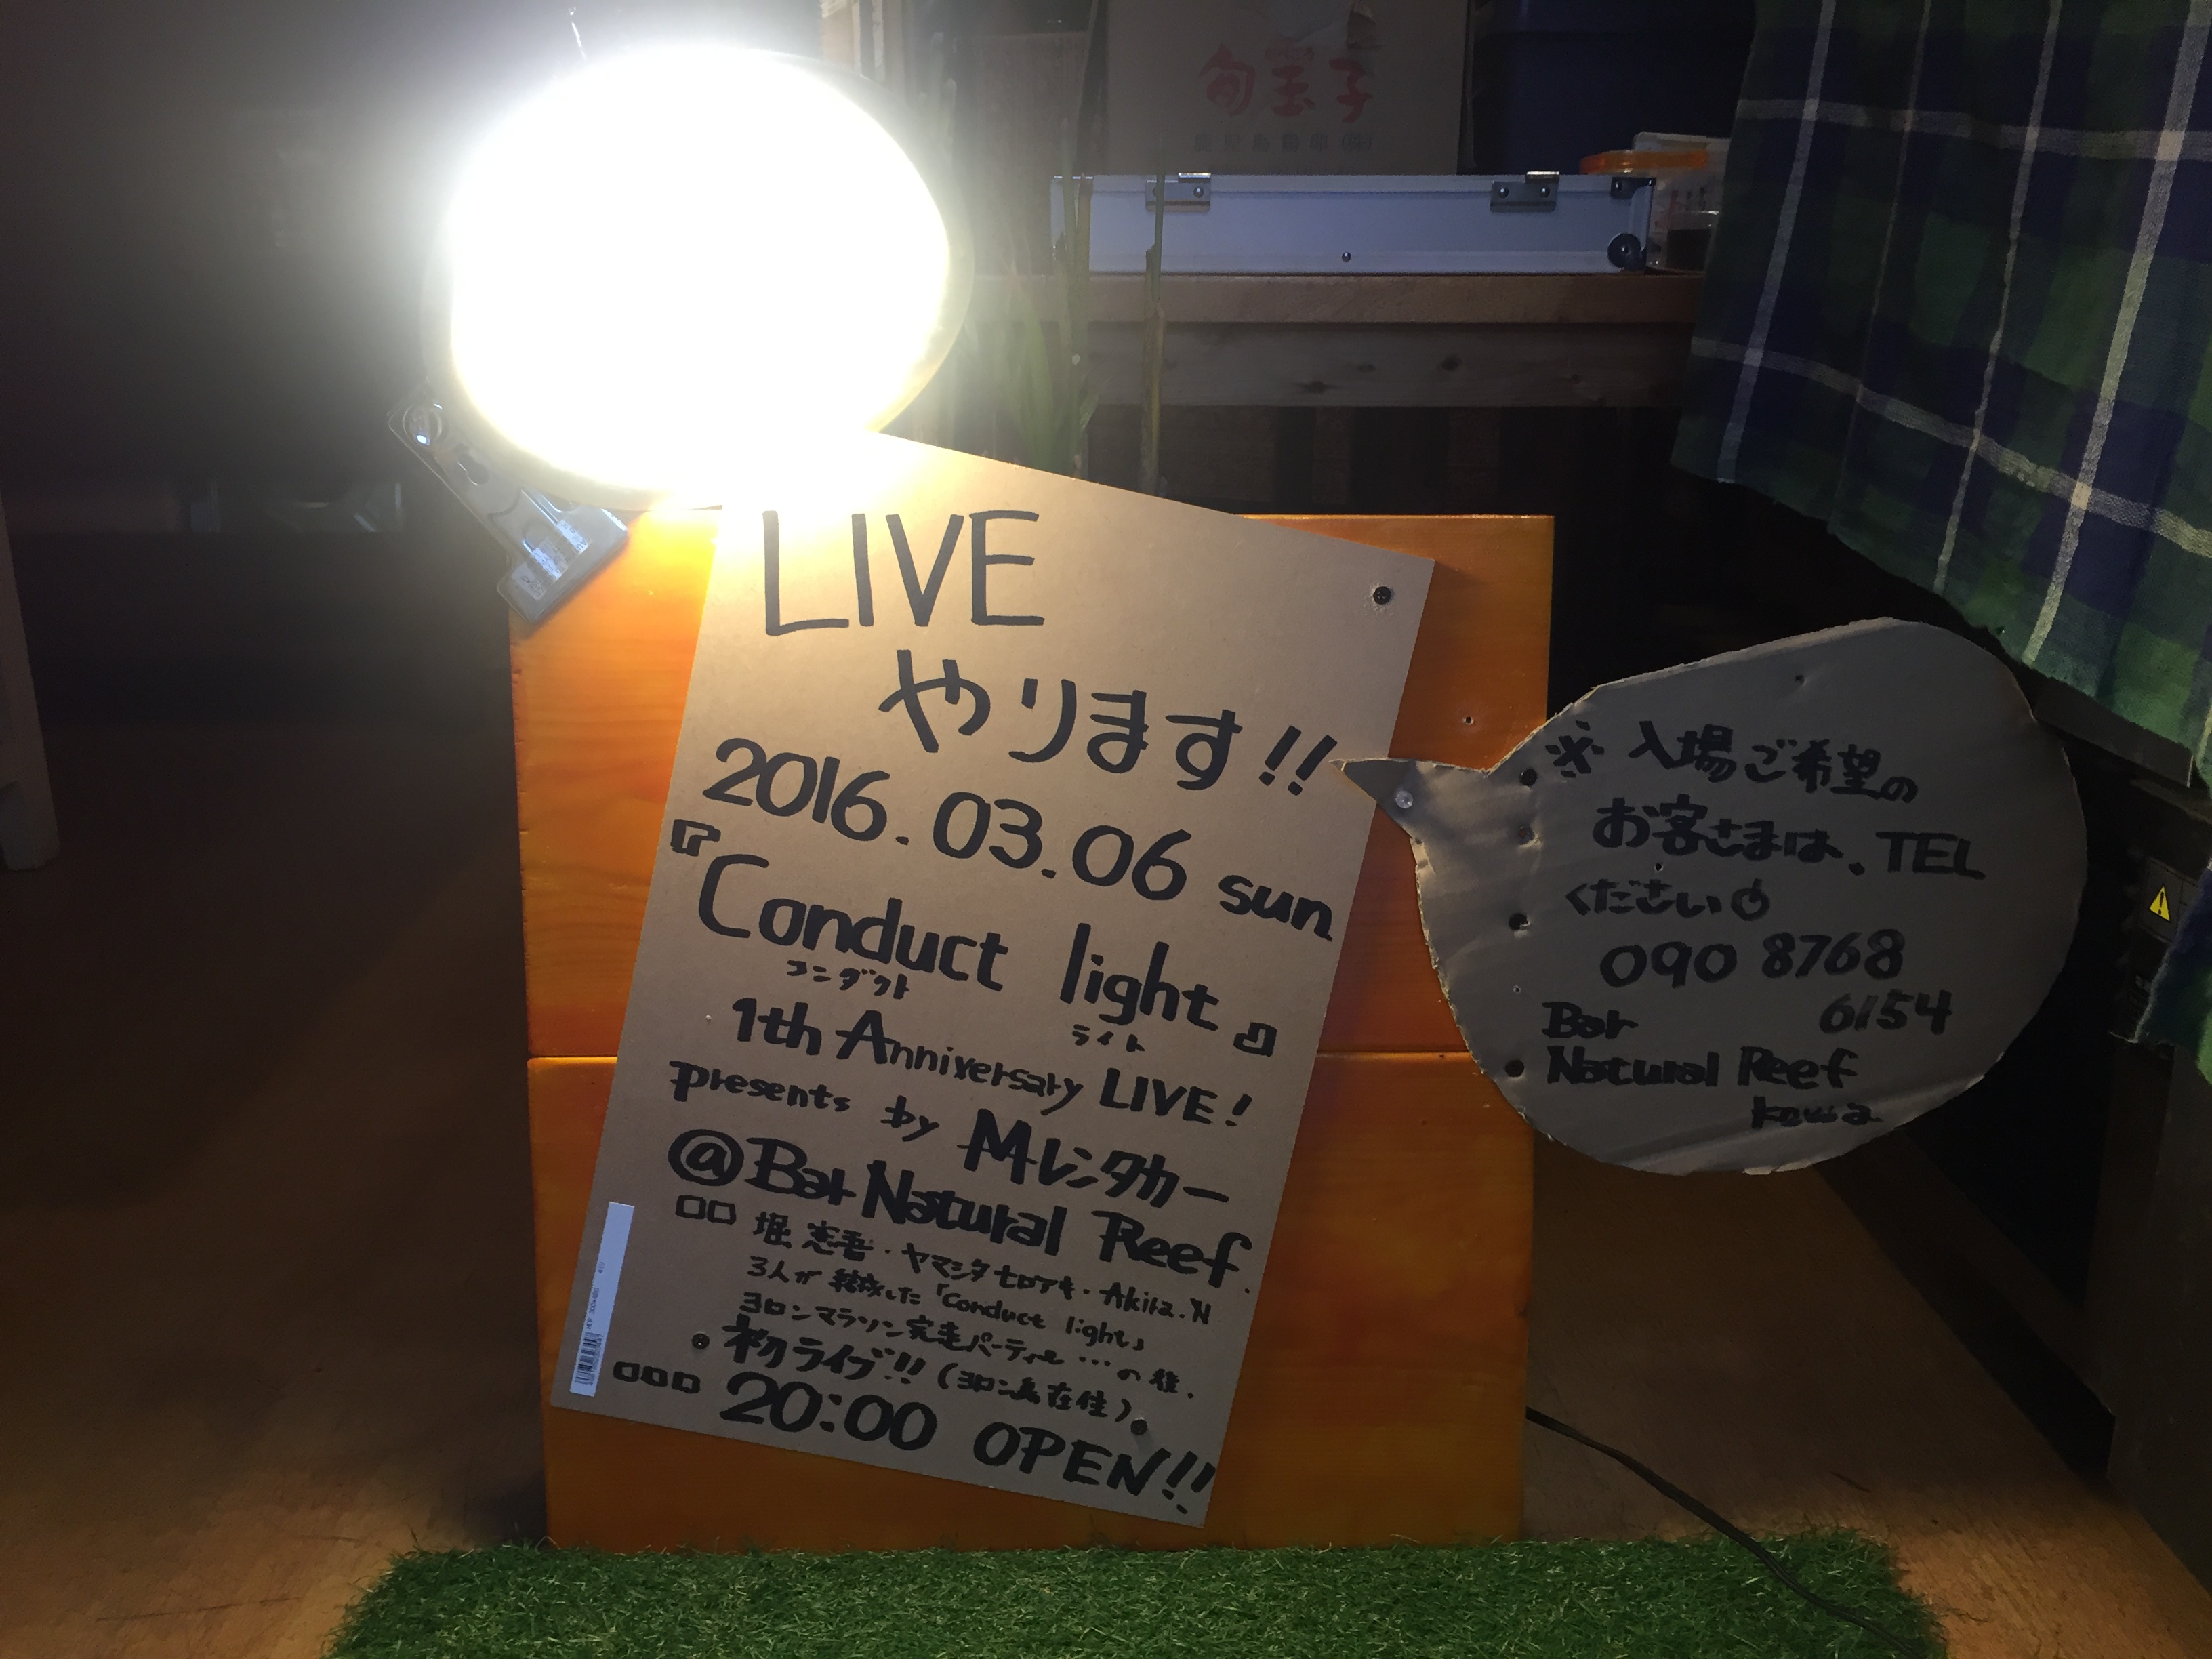 旬宝子
LIVE
やります!!
2016.03.06 sun
『Conduct light』
コンダクト ライト
1th Anniversary LIVE!
presents by Mレンタカー
@Bar Natural Reef
□□ 堀 憲吾・ヤマシタヒロアキ・Akira.N
3人が結成した「Conduct light」
ヨロンマラソン完走パーティー…の後、
初ライブ!!(ヨロン島在住)
□□□ 20:00 OPEN!!
※入場ご希望の
お客さまは、TEL
ください
090 8768
6154
Bar
Natural Reef
kowa